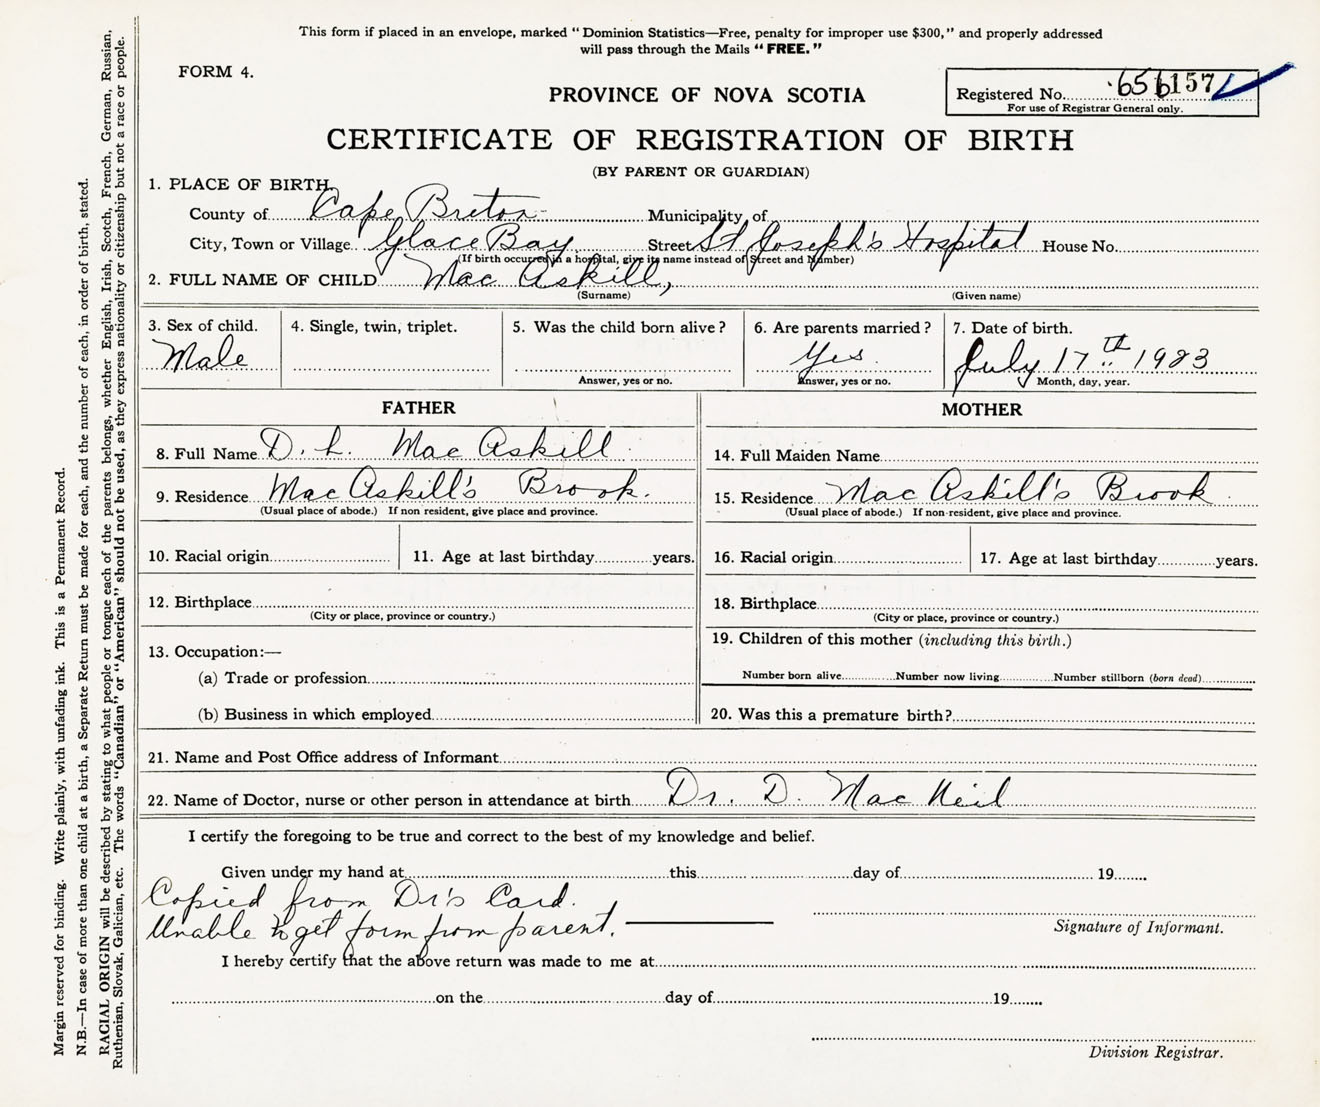 This form if placed in an envelope, marked "Dominion Statistics—Free, penalty for improper use $300," and properly addressed
will pass through the Mails "FREE."
FORM 4.
Registered No. 656157
For use of Registrar General only.
PROVINCE OF NOVA SCOTIA
CERTIFICATE OF REGISTRATION OF BIRTH
(BY PARENT OR GUARDIAN)
1. PLACE OF BIRTH
County of Cape Breton Municipality of
City, Town or Village Glace Bay Street St Joseph's Hospital House No.
(If birth occurred in a hospital, give its name instead of Street and Number)
2. FULL NAME OF CHILD Mac Askill,
(Surname) (Given name)
3. Sex of child. 4. Single, twin, triplet. 5. Was the child born alive? 6. Are parents married? 7. Date of birth.
Male Yes July 17th 1923
Answer, yes or no. Answer, yes or no. Month, day, year.
FATHER MOTHER
8. Full Name D. L. Mac Askill 14. Full Maiden Name
9. Residence Mac Askill's Brook. 15. Residence Mac Askill's Brook
(Usual place of abode.) If non resident, give place and province. (Usual place of abode.) If non-resident, give place and province.
10. Racial origin 11. Age at last birthday years. 16. Racial origin 17. Age at last birthday years.
12. Birthplace 18. Birthplace
(City or place, province or country.) (City or place, province or country.)
19. Children of this mother (including this birth.)
13. Occupation:—
(a) Trade or profession Number born alive Number now living Number stillborn (born dead)
(b) Business in which employed 20. Was this a premature birth?
21. Name and Post Office address of Informant
22. Name of Doctor, nurse or other person in attendance at birth Dr. D. Mac Neil
I certify the foregoing to be true and correct to the best of my knowledge and belief.
Given under my hand at this day of 19
Copied from Dr's Card.
Unable to get form from parent.
Signature of Informant.
I hereby certify that the above return was made to me at
on the day of 19
Division Registrar.
Margin reserved for binding. Write plainly, with unfading ink. This is a Permanent Record.
N.B.—In case of more than one child at a birth, a Separate Return must be made for each, and the number of each, in order of birth, stated.
RACIAL ORIGIN will be described by stating to what people or tongue each of the parents belongs, whether English, Irish, Scotch, French, German, Russian,
Ruthenian, Slovak, Galician, etc. The words "Canadian" or "American" should not be used, as they express nationality or citizenship but not a race or people.